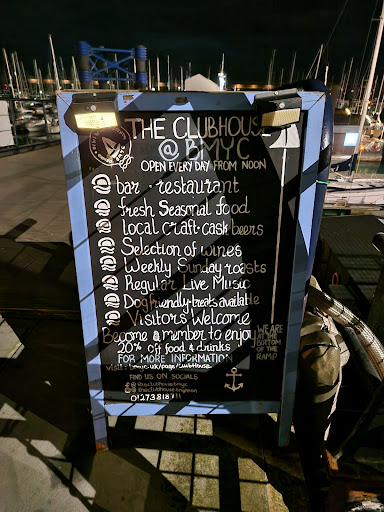 THE CLUBHOUSE
@ BMYC
OPEN EVERY DAY FROM NOON
bar · restaurant
fresh Seasonal food
local craft · cask beers
Selection of wines
Weekly Sunday roasts
Regular Live Music
Dog friendly · treats available
Visitors Welcome
Become a member to enjoy
20% off food & drinks
FOR MORE INFORMATION
WE ARE
AT THE
BOTTOM
OF THE
RAMP
FIND US ON SOCIALS
01273 818